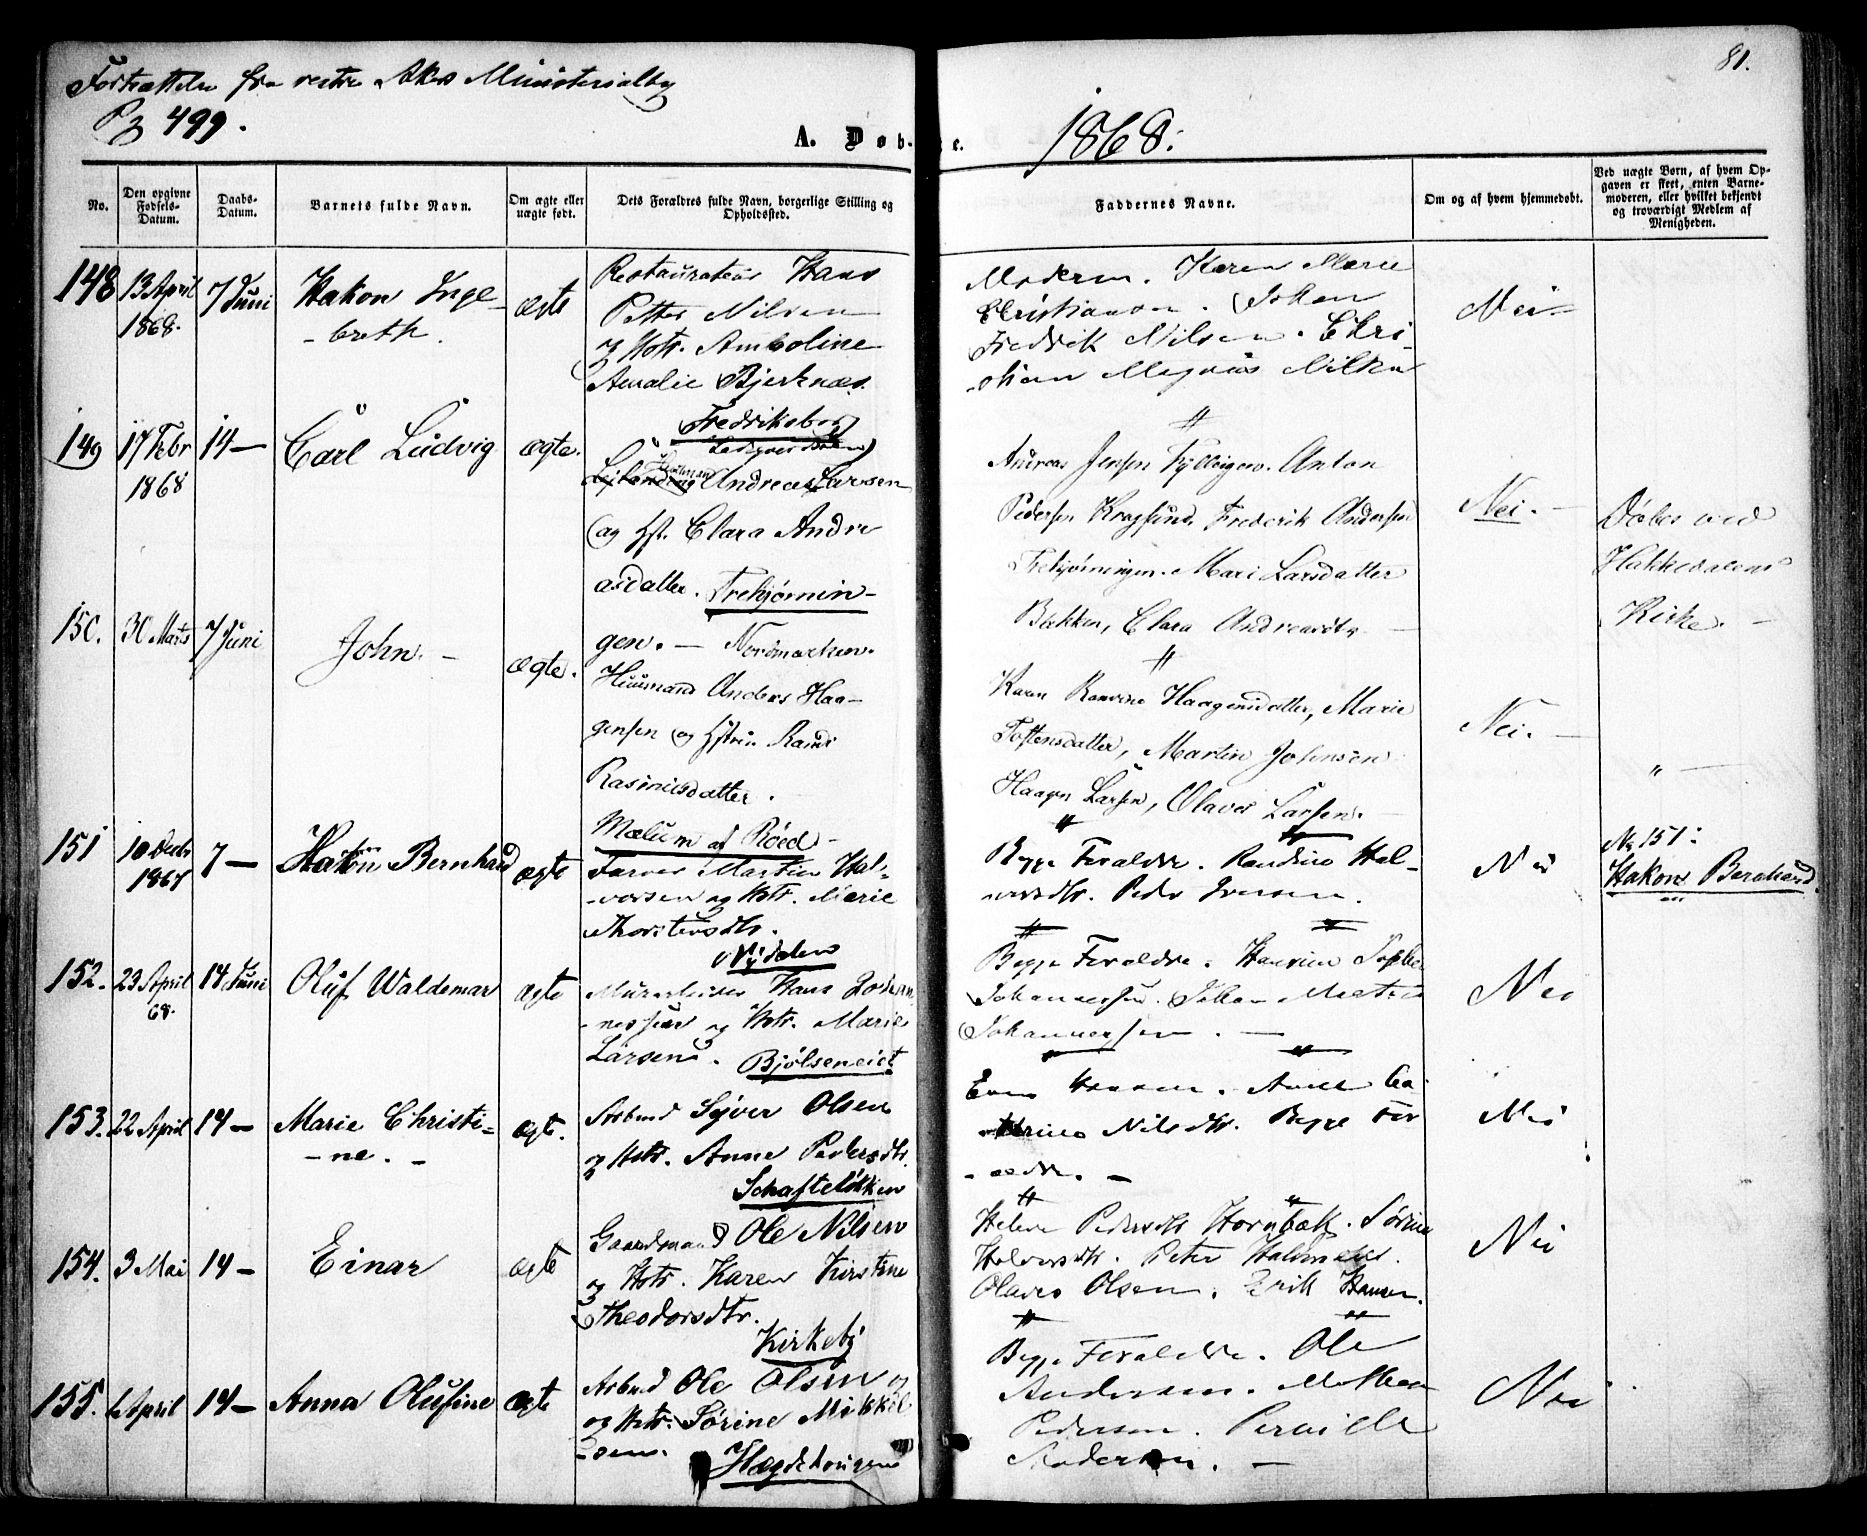 81.
Fortsættelse fra vestre Akers Ministerialbog
Pg 499.
A. Døb- e. 1868.
No.
Den opgivne Fødsels-Datum.
Daabs-Datum.
Barnets fulde Navn.
Om ægte eller uægte født.
Dets Forældres fulde Navn, borgerlige Stilling og Opholdssted.
Faddernes Navne.
Om og af hvem hjemmedøbt.
Ved uægte Børn, af hvem Opgaven er skeet, enten Barnemoderen, eller hvilket bekjendt og troværdigt Medlem af Menigheden.
148 13 April 1868. 7 Juni
Hakon Inge-
-breth.
ægte
Restaurateur Hans
Petter Nilsen
og Hstr. Amboline
Amalie Bjerknæs.
Fredriksborg
Moderen. Karen Marie
Christiansen. Johan
Fredrik Nilsen. Chri-
-stian Magnus Nilsen
Nei
149 17 Febr 1868 14 —
Carl Ludvig
ægte.
Andreas Larsen
og Hst. Clara Andre
asdatter. Trehjørnin-
gen. — Nordmarken.
Andreas Jensen Fyllingen. Anton
Pedersen Kragsund. Frederik Andersen
Trehjørningen. Mari Larsdatter
Bakken, Clara Andreasdtr. —
Nei. —
Døbes ved
Hakkedalens
Kirke. —
150. 30 Marts 7 Juni
John. —
ægte.
Huusmand Anders Haa-
gensen og Hstru Randi
Rasmusdatter.
Mælum af Røed —
Karen Haagensdatter, Marie
Tostensdatter, Martin Johnsen
Haagen Larsen, Olaves Larsen.
Nei. —
" —
151 10 Decbr 1867 7 —
Hakon Bernhard
ægte
Farver Martin Hal-
-vorsen og Hstr. Marie
Thorstensdtr.
Nydalen
Begge Forældre. Randine Hal-
-vorsdtr. Peder Iversen.
Nei
No 151:
Hakon Bernhard
152. 23 April 68. 14 Juni
Oluf Waldemar
ægte
Murarbeider Hans Johan
-nessen og Hstr. Marie
Larsen. Bjølseneiet
Begge Forældre. Hansine Sophie
Johannessen. Johan Martin
Johannessen. —
Nei
153. 22 April 14 —
Marie Christi-
-ne. —
ægte.
Arbmd Syver Olsen
og Hstr. Anne Pedersdtr.
Schafteløkken
Even Hansen. Anne Ca-
-thrine Nilsdtr. Begge For
-ældre. —
Nei
154. 3 Mai 14 —
Einar
ægte
Gaardmand Ole Nilsen
og Hstr. Karen Kirstine
Theodorsdtr.
Kirkeby
Helene Pedersdtr Hornbæk. Sørine
Halvorsdtr. Peter Halvorsen.
Olaves Olsen. Erik Hansen.
Nei
155. 6 April 14 —
Anna Olufine
ægte
Arbmd Ole Olsen
og Hstr. Sørine Mikkel
-sen.
Hægdehougen
Begge Forældre. Ole
Andersen. Mathea
Pedersen. Pernille
Andersen. —
Nei